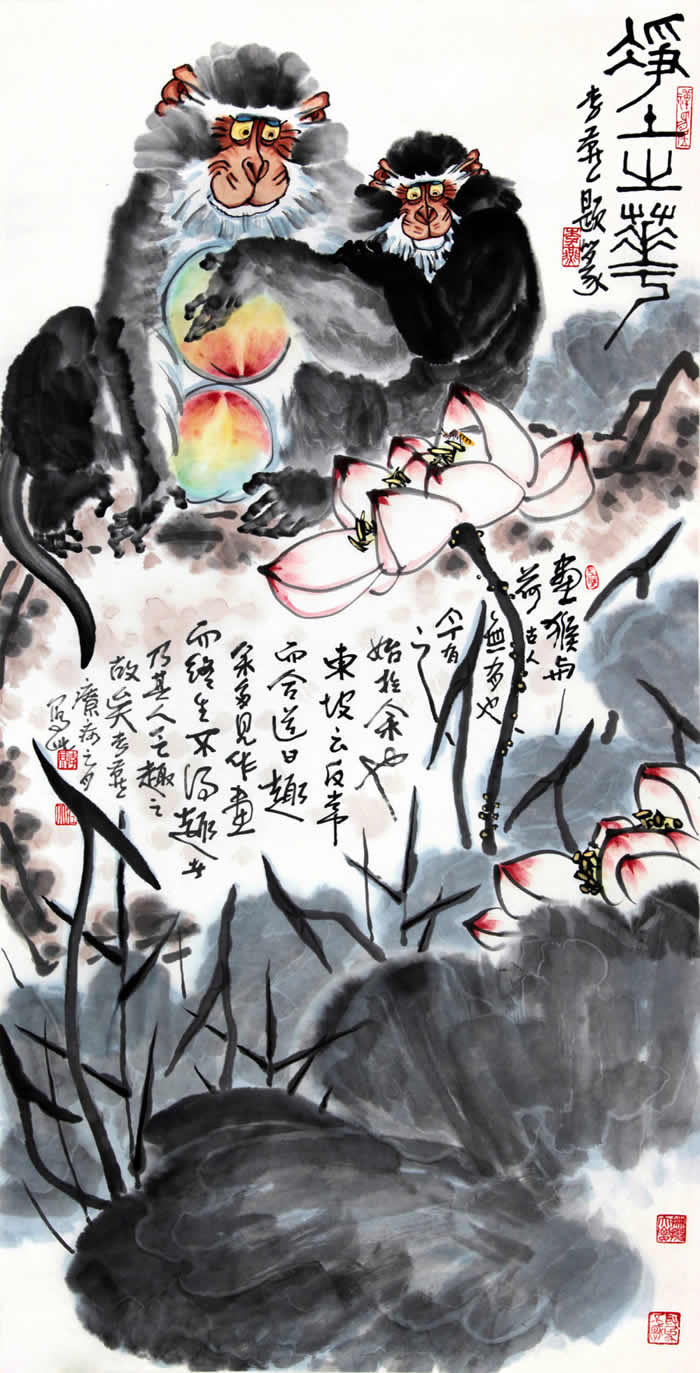 淨土之華
李燕題篆
畫猴與
荷古人
無有也
今有之
始於余也
東坡云反常
而合道曰趣
余多見作畫
而終生不得趣者
乃其人乏趣之
故矣李燕
寫此